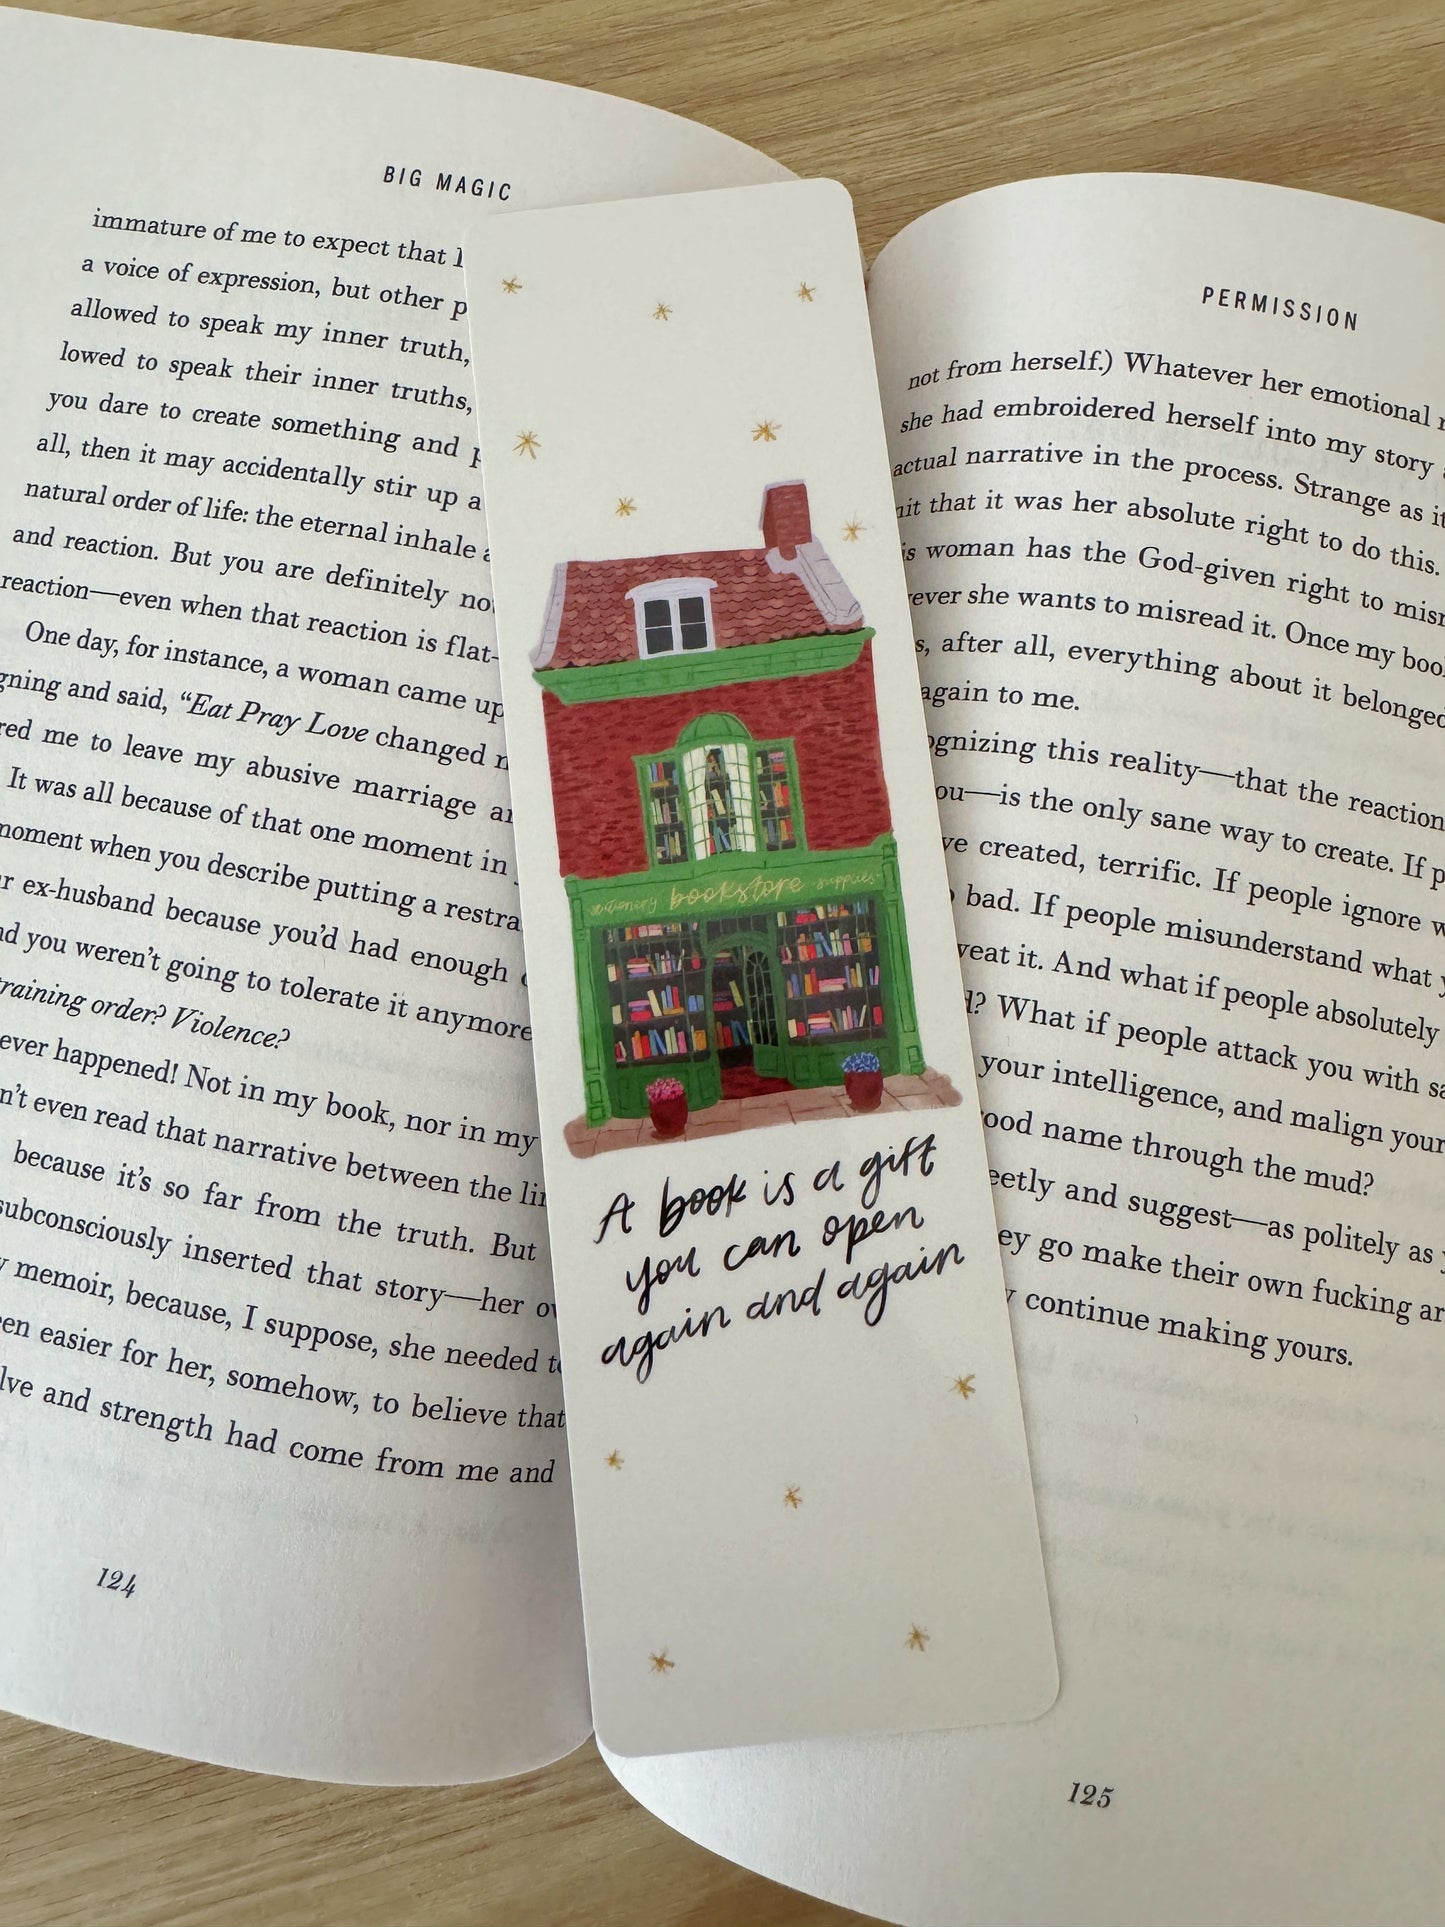 BIG MAGIC
immature of me to expect that
a voice of expression, but other
allowed to speak my inner truth,
lowed to speak their inner truths,
you dare to create something and
all, then it may accidentally stir up a
natural order of life: the eternal inhale
and reaction. But you are definitely
reaction—even when that reaction is flat-
One day, for instance, a woman came up
and said, “Eat Pray Love changed
me to leave my abusive marriage
It was all because of that one moment in
moment when you describe putting a
ex-husband because you’d had enough
you weren’t going to tolerate it anymore
training order? Violence?
ever happened! Not in my book, nor in my
even read that narrative between the
because it’s so far from the truth. But
subconsciously inserted that story—her
memoir, because, I suppose, she needed
easier for her, somehow, to believe that
and strength had come from me and
124
stationery bookstore supplies
A book is a gift
you can open
again and again
PERMISSION
not from herself.) Whatever her emotional
she had embroidered herself into my story
actual narrative in the process. Strange as
that it was her absolute right to do this.
woman has the God-given right to
she wants to misread it. Once my
after all, everything about it belonged
again to me.
this reality—that the reaction
is the only sane way to create. If
created, terrific. If people ignore
bad. If people misunderstand what
it. And what if people absolutely
What if people attack you with
your intelligence, and malign your
good name through the mud?
and suggest—as politely as
go make their own fucking
continue making yours.
125